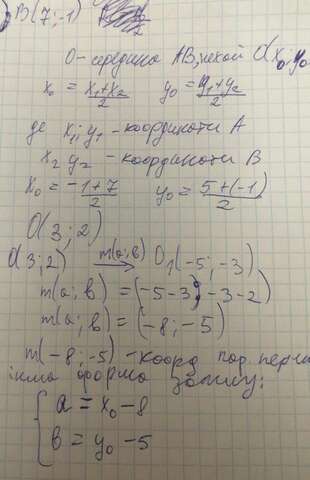 B(7;-1)
O-середина AB, нехай O(x₀;y₀
x₀ = x₁+x₂/2 y₀ = y₁+y₂/2
де x₁;y₁ - координати A
x₂ y₂ - координати B
x₀ = -1+7/2 y₀ = 5+(-1)/2
O(3;2)
O(3;2) m(a;b)→ O₁(-5;-3)
m(a;b) = (-5-3; -3-2)
m(a;b) = (-8;-5)
m(-8;-5) - коорд пар. перен
інша форма запису:
{ a = x₀ -8
b = y₀ -5